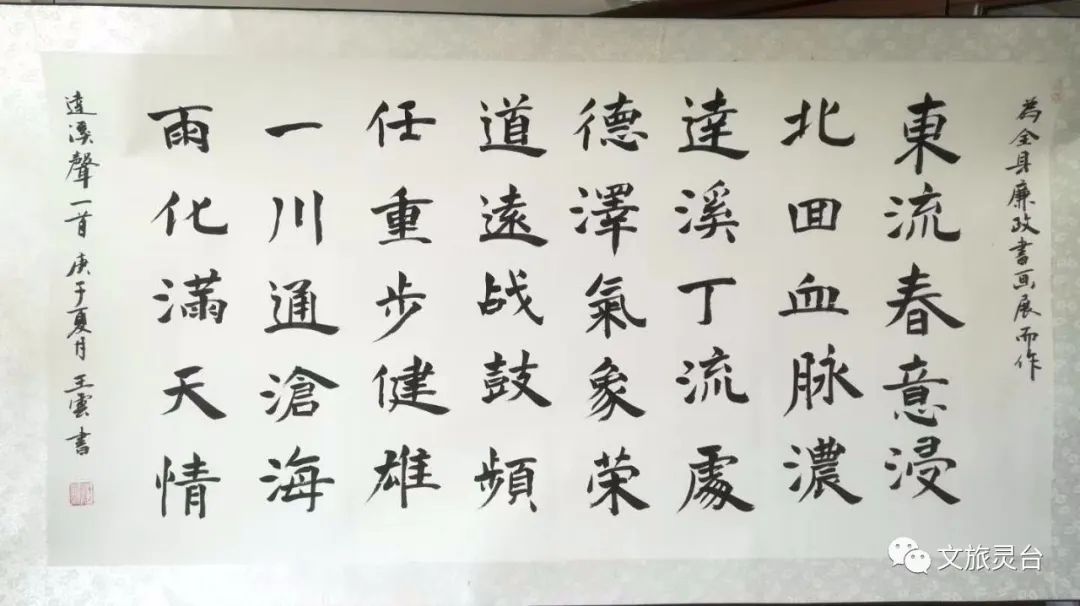 為全县廉政書画展而作
東流春意浸
北回血脉濃
達溪丁流處
德澤氣象荣
道遠战鼓頻
任重步健雄
一川通滄海
雨化滿天情
達溪聲一首 庚子夏月 王雲書
文旅灵台